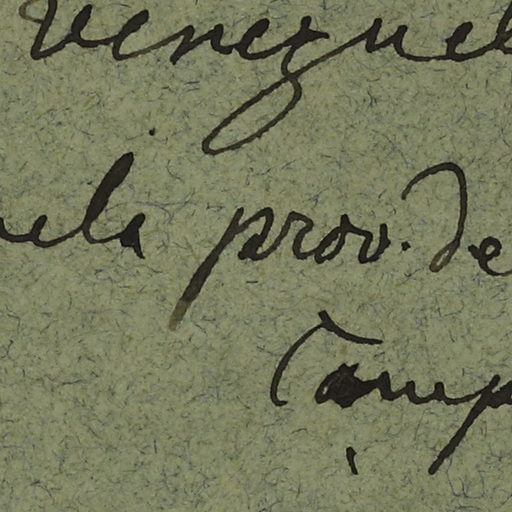 Venezuel
uela prov. de
Camp